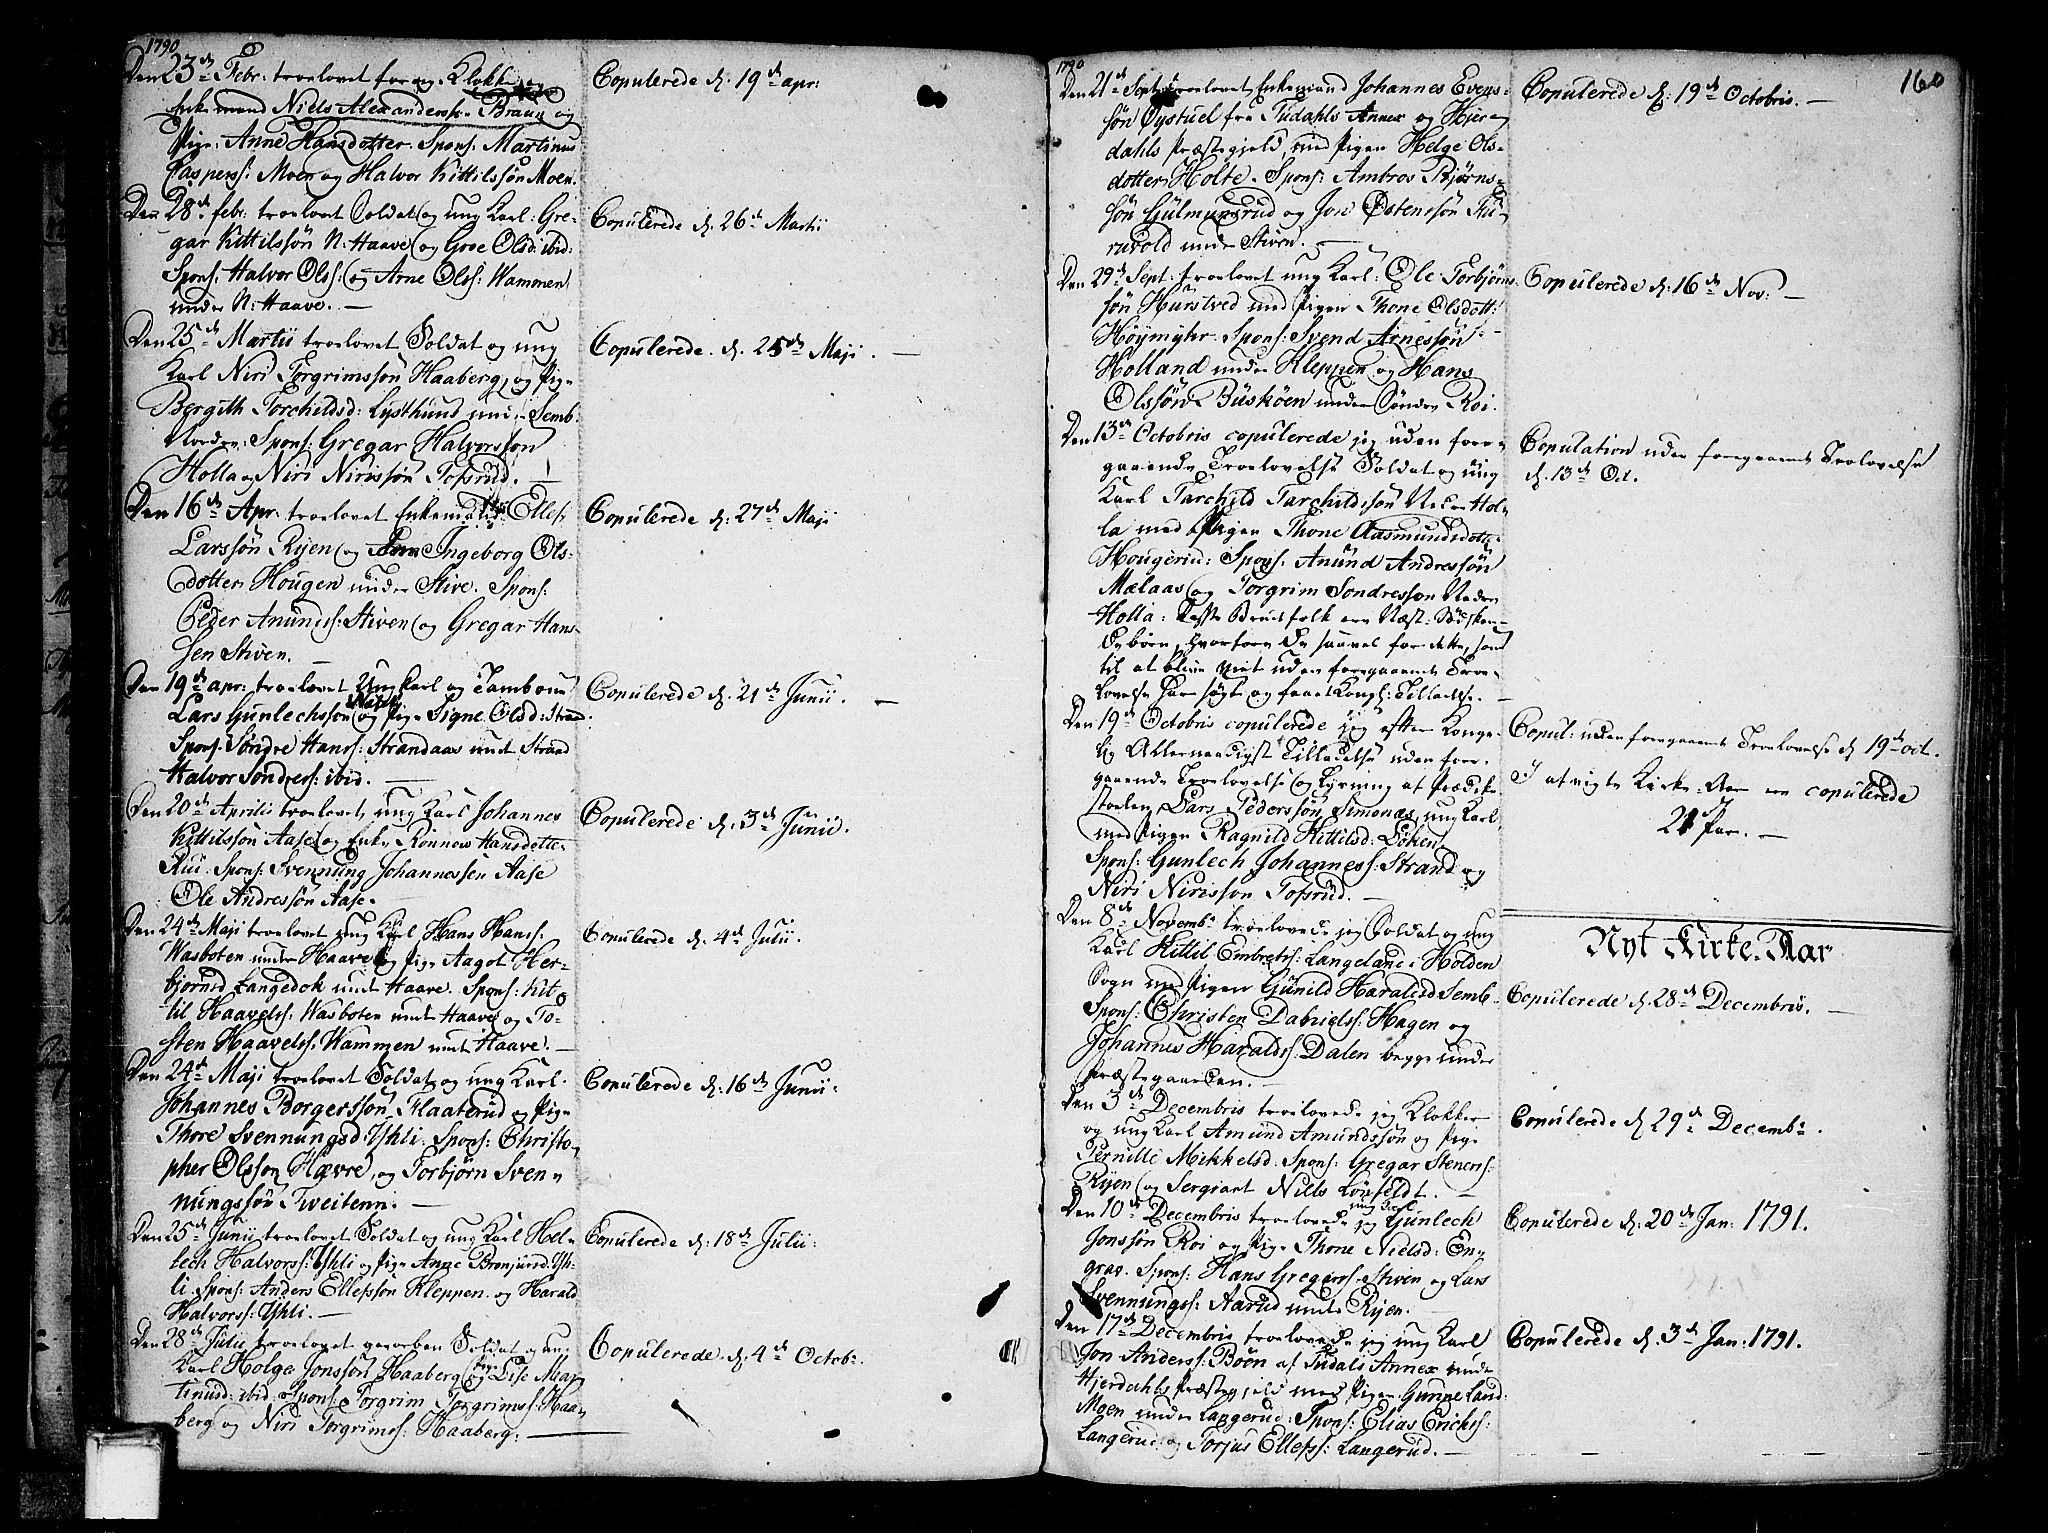 1790
Den 23de Febr: troelovet Klokker og
Enkemand Niels Alexanderss. Braun og
Pige Anne Hansdotter. Spons: Martinus
Caspers: Moen og Halvor Kittilssön Moen.
Copulerede d. 19de apr:
Den 28de febr: troelovet Soldat og ung Karl: Gre-
gar Kittilssön N: Haave og Groe Olsd: ibid:
Spons: Halvor Olss: og Arne Olss: Wammen
under N: Haave. —
Copulerede d. 26de Martii
Den 25de Martii troelovet Soldat og ung
Karl Niri Torgrimssön Haaberg, og Pige
Bergith Torchildsd: Lysthuus under Semb-
Nordre: Spons: Gregar Halvorssön
Holla og Niri Nirissön Tofsrud. —
Copulerede d. 25de Maji. —
Den 16de Apr: troelovet Enkemand Ellef
Larssön Ryen og Ingeborg Ols-
dotter Hougen under Stive. Spons:
Peder Anunds: Stiven og Gregar Hans-
sen Stiven. —
Copulerede d. 27de Maji
Den 19de apr: troelovet Ung Karl og Tambour
Lars Gunlechssön og Pige Signe Olsd: Strand.
Spons: Söndre Hanss: Strandaas under Strand
Halvor Sondress: ibid. —
Copulerede d. 21de Junii. —
Den 20de Aprili troelovet ung Karl Johannes
Kittilssön Aase og Enke Rönnow Hansdotter
Rui. Spons: Svennung Johannessen Aase
Ole Andressön Aase.
Copulerede d. 3de Junii.
Den 24de Maji troelovet ung Karl Hans Hanss:
Wasboten under Haave og Pige Aagot Her-
bjornsd Langedok under Haave. Spons: Kit-
til Haavelss: Wasboten under Haave og To-
sten Haavelss: Wammen under Haave. —
Copulerede d. 4de Julii.
Den 24de Maji troelovet Soldat og ung Karl.
Johannes Borgerssön Flaaterud og Pige
Thore Svennungsd Yhli. Spons: Christo-
pher Olsson Hævre, og Torbjørn Sven-
nungssön Tweitenn. —
Copulerede d. 16de Junii.
Den 25de Junii troelovet Soldat og ung Karl Hel-
lech Halvorss: Yhli og Pige Anne Bronjuusd Yh-
li. Spons: Anders Ellefssön Kleppen og Harald
Halvorss: Yhli. —
Copulerede d. 18de Julii:
Den 28de Julii troelovet geworben Soldat og ung
Karl Holge Jonssön Haaberg og Pige Lise Mar-
tinusd: ibid. Spons: Torgrim Torgrimss: Haa-
berg og Niri Torgrimss: Haaberg. —
Copulerede d. 4de Octobr.
1790
160
Den 21de Sept: troelovet Enkemand Johannes Evens-
sön Oystuel fra Tudahls Annex og Hier-
dahls Præstegield, med Pigen Helge Ols-
dotter Holte. Spons: Ambros Bjørns-
sön Gjülmunsrud og Jon Östenssön Fu-
ruvold under Stiven. —
Copulerede d. 19de Octobris. —
Den 29de Sept: troelovet ung Karl: Ole Torbjørns-
sön Hurstved med Pigen Thone Olsdott:
Höymyhr. Spons: Svend Arnessön
Holland under Kleppen og Hans
Olssön Buskoen under Söndre Roi.
Copulerede d. 16de Nov: —
Den 13de Octobris copulerede jeg uden fore-
gaaende Troelovelse Soldat og ung
Karl Tarchild Tarchildssön Nedre Hol-
la med Pigen Thone Aasmundsdott:
Hougerud: Spons: Anund Andressön
Mælaas og Torgrim Sondresson Nedre
Holla: Disse Brudfolk ere Næst-Södsken-
debörn, hvorfore de saavel for dette, som
til at blive viet uden foregaaende Troe-
lovelse har søgt og faaet Kongl: Tilladelse. —
Copulation uden foregaaende Troelovelse
d. 13de Oct.
Den 19de Octobris copulerede jeg efter Konge-
lig Allernaadigst Tilladelse uden fore-
gaaende Troelovelse og Lysning af Prædike-
stoelen, Lars Pederssön Simonæs, ung Karl,
med Pigen Ragnild Kittilsd: Löken
Spons: Gunlech Johanness: Strand og
Niri Nirisson Tofsrud. —
Copul: uden foregaaende Troelovelse d 19de oct.
I afvigte Kirke-Aar ere copulerede
21 Par. —
Nyt Kirke-Aar
Den 8de Novembr. troelovede jeg Soldat og ung
Karl Kittil Embretss: Langeland i Holden
Sogn med Pigen Gunild Haraldsd Semb-
Spons: Christen Danielss: Hagen og
Johannes Haraldss: Dalen begge under
Præstegaarden. —
Copulerede d. 28de Decembris. —
Den 3de Decembris troelovede jeg Klokker
og ung Karl Amund Amundssön og Pige
Pernille Mikkelsd. Spons: Gregar Stenerss:
Ryen og Sergiant Niels Lönfeldt. —
Copulerede d. 29de Decembr.
Den 10de Decembris troelovede jeg ung Karl Gunlech
Jonssön Roi og Pige Thone Nielsd: En-
grav. Spons: Hans Gregarss. Stiven og Lars
Svennungss: Aarud under Ryen. —
Copulerede d. 20de Jan: 1791.
Den 17de Decembris troelovede jeg ung Karl
Jon Anderss: Böen af Tudals Annex under
Hjerdahls Præstegield med Pigen Gunne Land-
Moen under Langerud. Spons: Elias Erichss:
Langerud og Torjus Ellefss: Langerud. —
Copulerede d. 3de Jan: 1791.